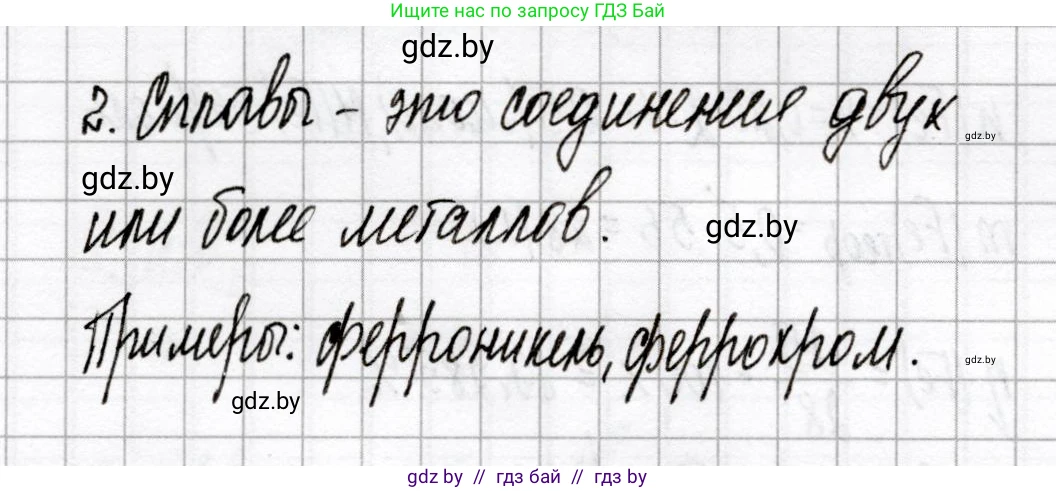 Ищите нас по запросу ГДЗ Бай
gdz.by
2. Сплавы - это соединения двух
gdz.by
gdz.by
или более металлов.
gdz.by
Примеры: ферроникель, феррохром.
gdz.by
gdz.by
gdz by // гдз бай // гдз by